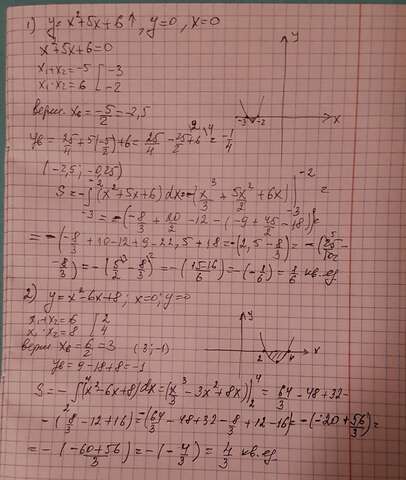 1) y=x²+5x+6↑, y=0, x=0
x²+5x+6=0
x₁+x₂=-5 [-3
x₁·x₂=6 [-2
верш. xв=-5/2=-2,5
yв=25/4+5(-5/2)+6=25/4-25/2+6=-1/4
(-2,5; -0,25)
y
-3 -2 x
S=-∫(x²+5x+6)dx=-(x³/3+5x²/2+6x)|-2 -3=
=-(-8/3+20/2-12-(-9+45/2-18))=
=-(-8/3+10-12+9-22,5+18=-(2,5-8/3)=-(25/10
-8/3)=-(5/2-8/3)=-(15-16/6)=-(-1/6)=1/6 кв.ед
2) y=x²-6x+8; x=0; y=0
x₁+x₂=6 [2
x₁·x₂=8 [4
верш xв=6/2=3 (3;-1)
yв=9-18+8=-1
y
2 4 x
S=-∫(x²-6x+8)dx=(x³/3-3x²+8x)|4 2=64/3-48+32-
-(8/3-12+16)=-(64/3-48+32-8/3+12-16)=-(-20+56/3)=
=-(-60+56/3)=-(-4/3)=4/3 кв.ед